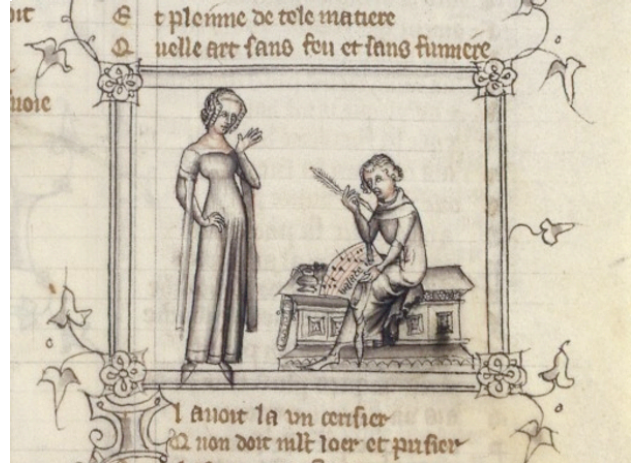 oit
E t plenne de tele matiere
Q uelle art sans feu et sans fumiere
uoie
I auoit la vn cerisier
Q non doit mlt loer et prisier